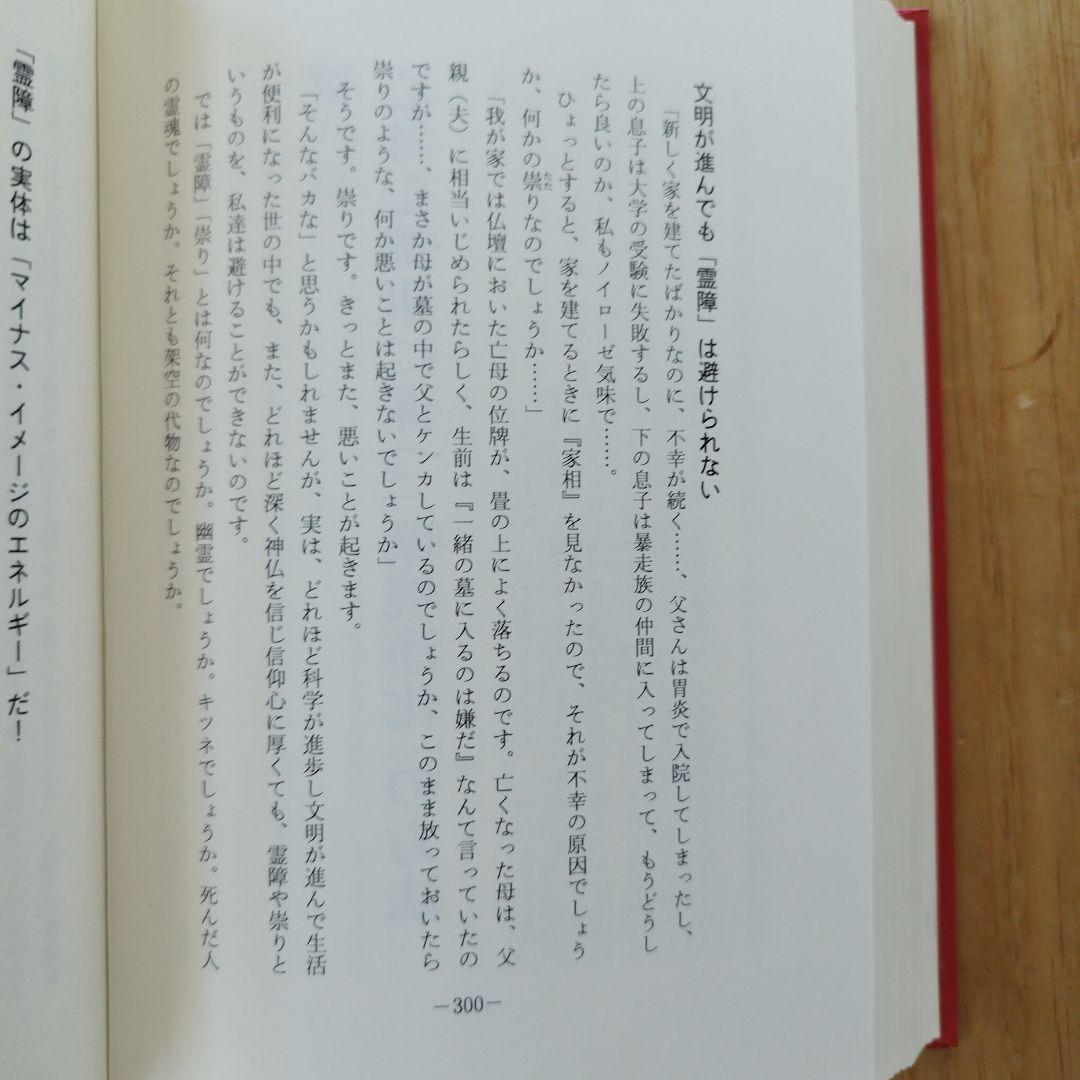 文明が進んでも「霊障」は避けられない
「新しく家を建てたばかりなのに、不幸が続く……、父さんは胃炎で入院してしまったし、
上の息子は大学の受験に失敗するし、下の息子は暴走族の仲間に入ってしまって、もうどうし
たら良いのか、私もノイローゼ気味で……。
ひょっとすると、家を建てるときに『家相』を見なかったので、それが不幸の原因でしょう
か、何かの崇りなのでしょうか……」
「我が家では仏壇においた亡母の位牌が、畳の上によく落ちるのです。亡くなった母は、父
親（夫）に相当いじめられたらしく、生前は『一緒の墓に入るのは嫌だ』なんて言っていたの
ですが……、まさか母が墓の中で父とケンカしているのでしょうか、このまま放っておいたら
崇りのような、何か悪いことは起きないでしょうか」
そうです。崇りです。きっとまた、悪いことが起きます。
「そんなバカな」と思うかもしれませんが、実は、どれほど科学が進歩し文明が進んで生活
が便利になった世の中でも、また、どれほど深く神仏を信じ信仰心に厚くても、霊障や崇りと
いうものを、私達は避けることができないのです。
では「霊障」「崇り」とは何なのでしょうか。幽霊でしょうか。キツネでしょうか。死んだ人
の霊魂でしょうか。それとも架空の代物なのでしょうか。
—300—
「霊障」の実体は「マイナス・イメージのエネルギー」だ！